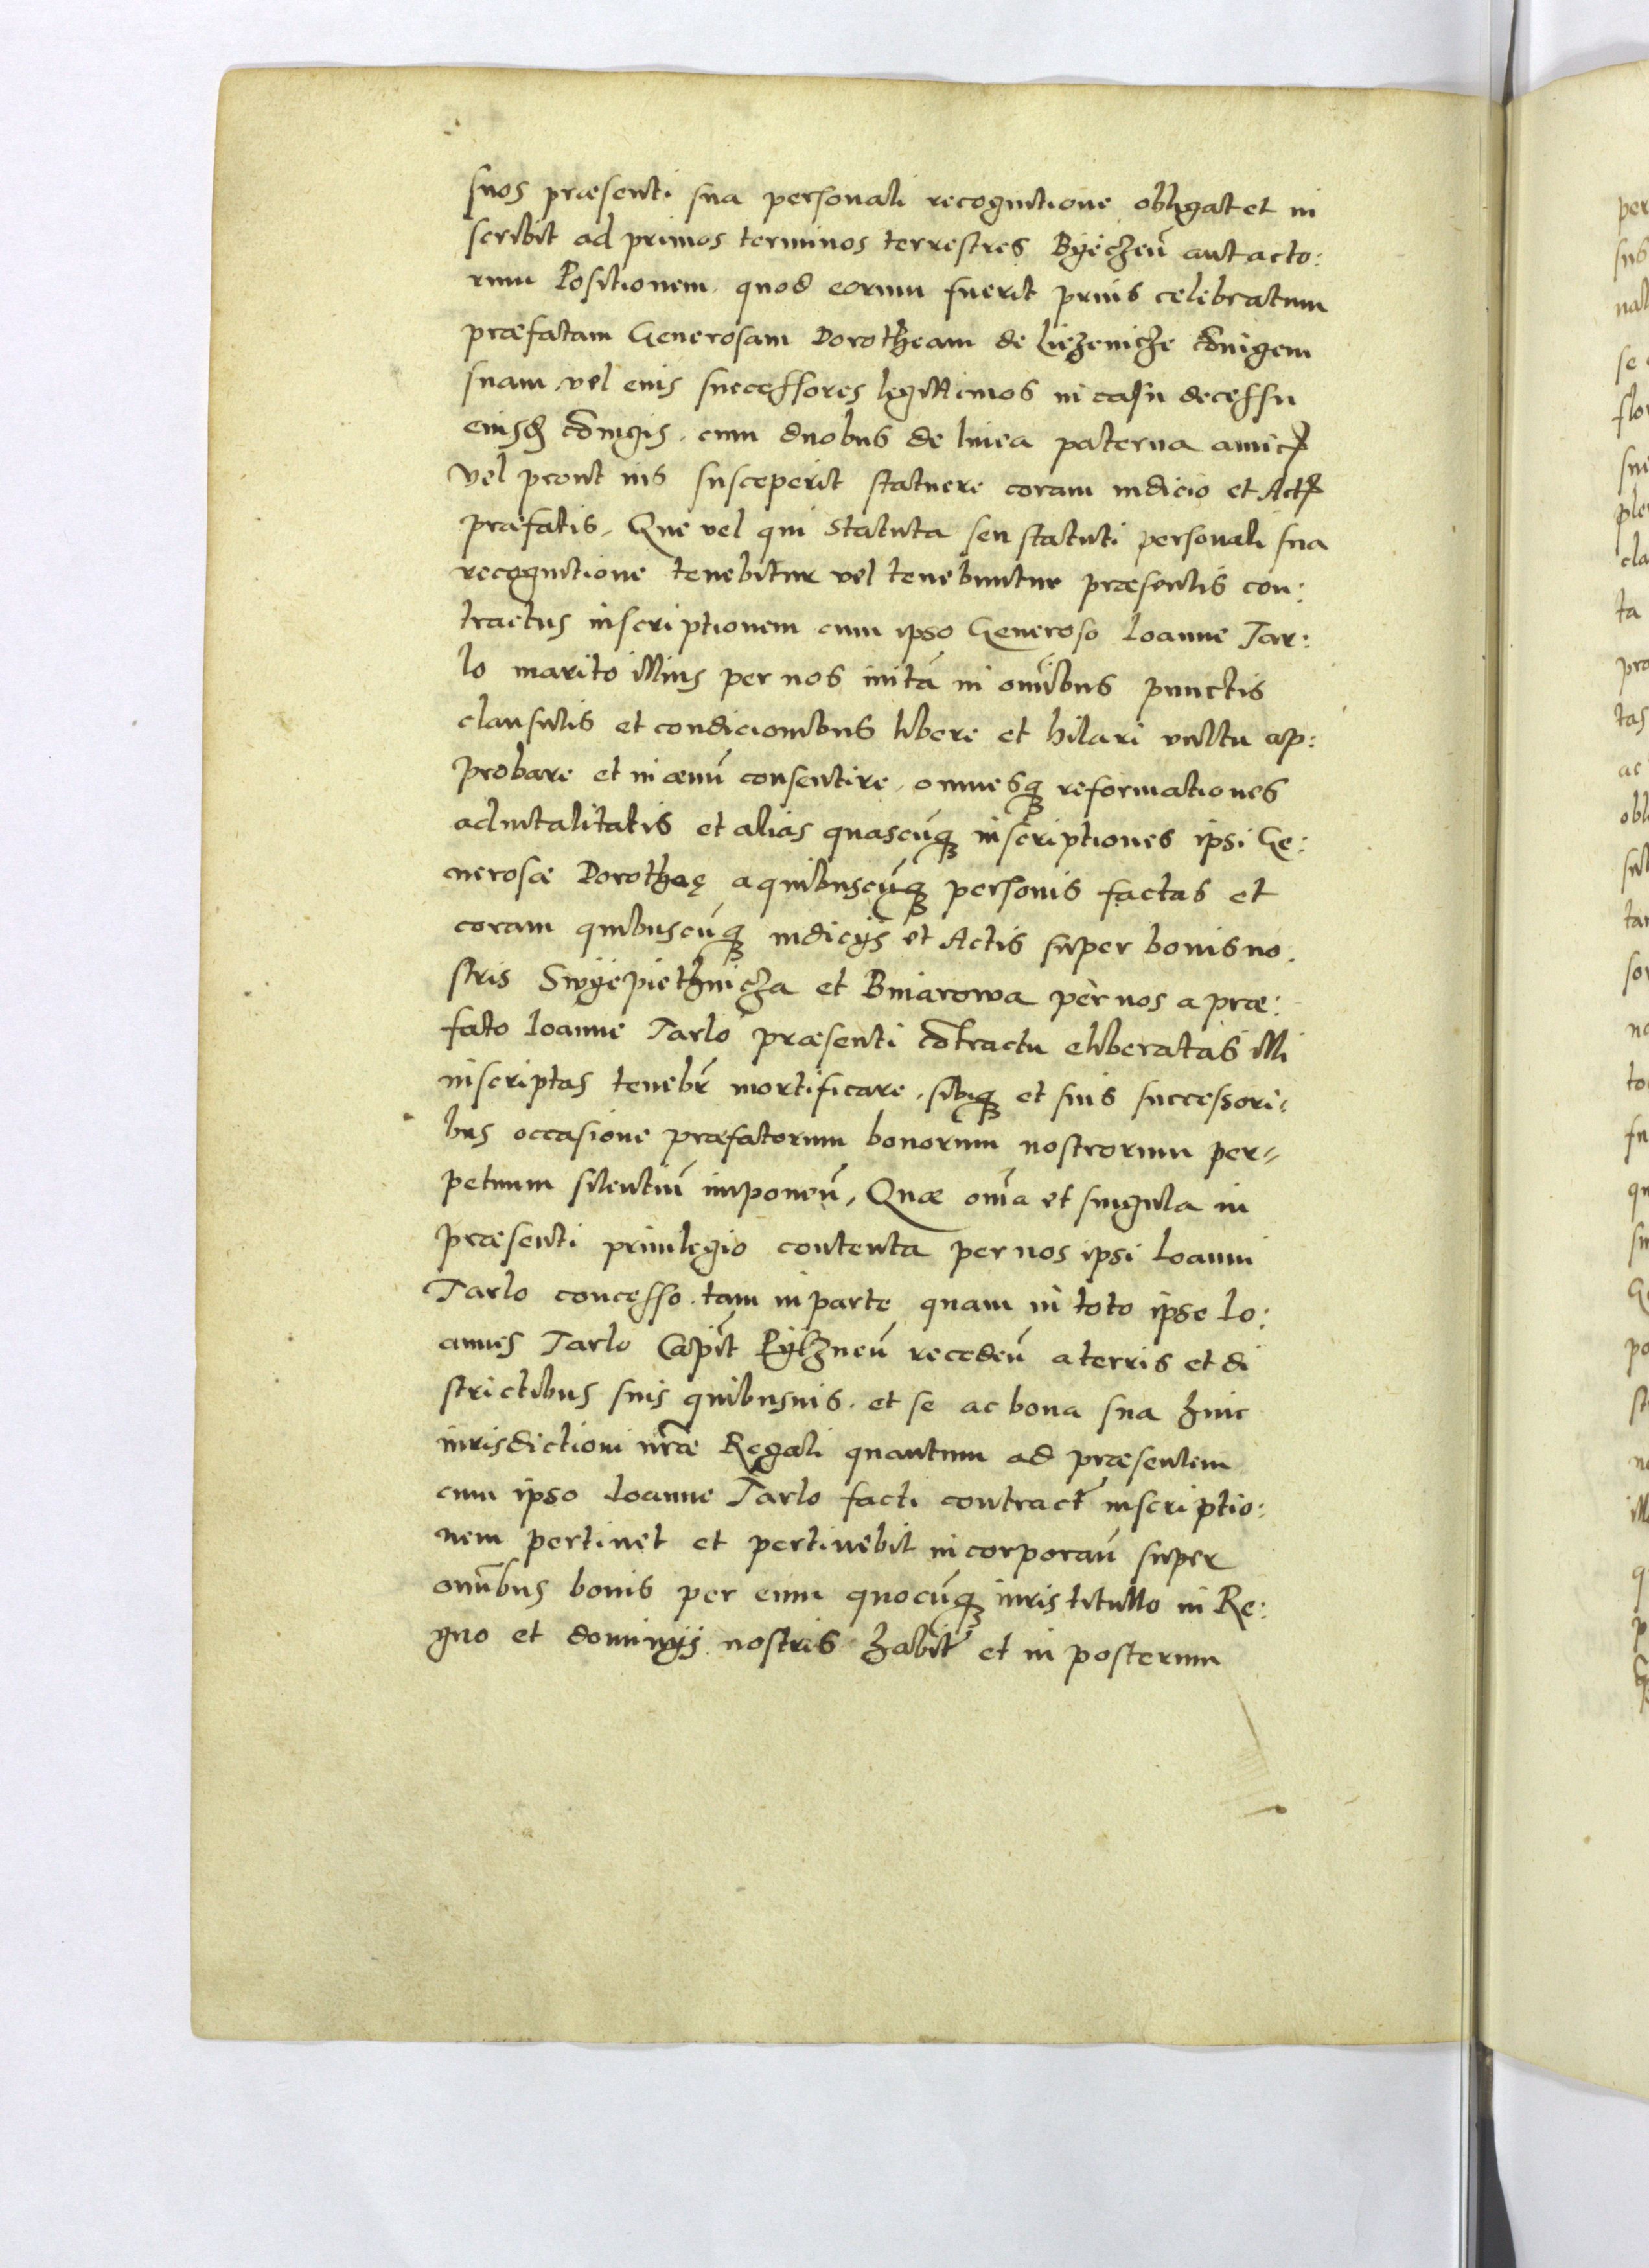 suos præsenti sua personali recognitione obligat et in
scribit ad primos terminos terrestres Byeczeń aut acto:
rum Positionem, quod eorum fuerit prius celebratum
præfatam Generosam Dorotheam de Liezenicze Cōiugem
suam, vel eius successores legittimos in casu decessu
eiusđ cōiugis, cum duobus de linea paterna amicꝭ
vel prout ius susceperit statuere coram iudicio et Actꝭ
præfatis, Que vel qui statuta seu statuti personali sua
recognitione tenebitur vel tenebuntur præsentis con:
tractus inscriptionem cum ipso Generoso Ioanne Tar:
lo marito illius per nos initā in om̄ibus punctis
clausulis et condicionibus libere et hilari vultu ap:
probare et in ævū consentire, omnesq́ꝫ reformationes
advitalitatis et alias quascūqꝫ inscriptiones ipsi Ge:
nerosæ Dorotheę a quibuscūqꝫ personis factas et
coram quibuscūqꝫ iudicÿs et Actis super bonis no:
stris Swyepiethnicza et Biniarowa per nos a præ:
fato Ioanne Tarlo præsenti cōtractu eliberatas illi
inscriptas teneb̄r mortificare, sibiqꝫ et suis successori:
bus occasione præfatorum bonorum nostrorum per=
petuum silentiū imponeń, Quæ om̄ia et singula in
præsenti privilegio contenta per nos ipsi Ioanni
Tarlo concesso, tam in parte quam in toto ipse Io:
annes Tarlo Capit̄ Pylzneń recedeń a terris et di
strictibus suis quibusuis, et se ac bona sua huic
iurisdictioni nr̄æ Regali quantum ad præsentem
cum ipso Ioanne Tarlo facti contract̄ inscriptio:
nem pertinet et pertinebit incorporań super
omībus bonis per eum quocūqꝫ iuris titullo in Re:
gno et dominÿs nostris habit̄ et in posterum